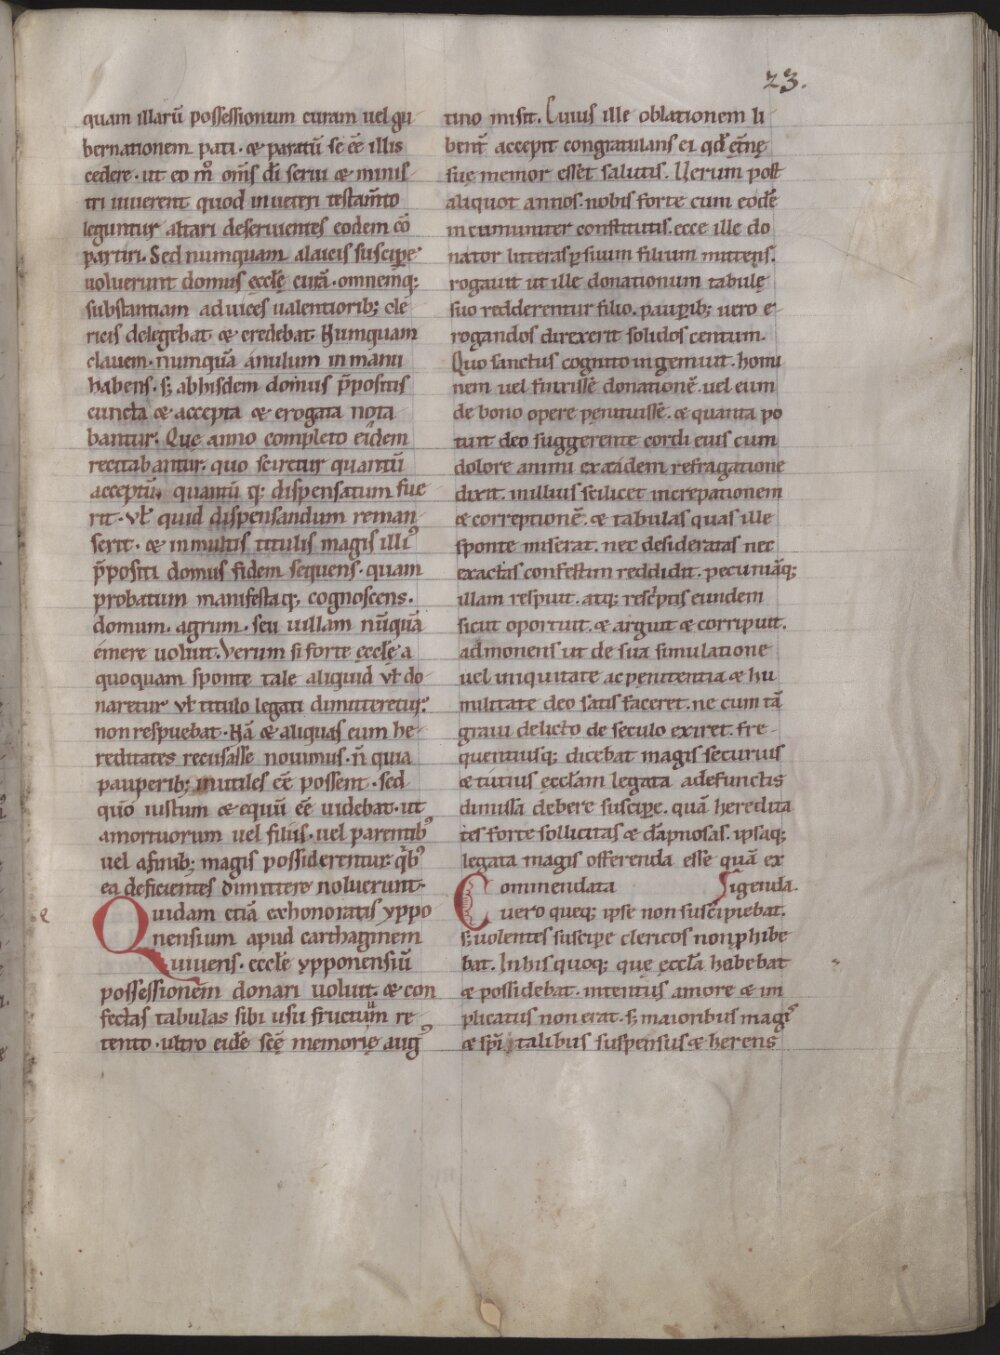 23.
quam illarū possessionum curam uel gu
bernationem pati. & paratū se eē illis
cedere. ut eo m̊ om̄s dī serui & minis
tri uiuerent quod in ueteri testam̄to
leguntur altari deseruientes eodem cō
partiri. Sed nunquam alaicis suscipe
uoluerunt domus ęccłę curā. omnemq;
substantiam ad uices ualentiorib; cle
ricis delegebat & credebat. Nunquam
clauem. nunquā anulum in manu
habens. s; ab hisdem domus p̄positis
cuncta & accepta & erogata nota
bantur. Quę anno completo eidem
recitabantur. quo sciretur quantū
acceptū. quantū q; dispensatum fue
rit. vł quid dispensandum reman
serit. & in multis titulis magis illi⁹
p̄positi domus fidem sequens. quam
probatum manifestaq; cognoscens.
domum. agrum. seu uillam nūquā
emere uoluit. Verum si forte ęccłę a
quoquam sponte tale aliquid vł do
naretur vł titulo legati dimitteretur.
non respuebat. Nā & aliquas eum he
reditates recusasse nouimus. n̄ quia
pauperib; inutiles eē possent. sed
quō iustum & equū eē uidebat. ut
amortuorum uel filiis. uel parentib⁹
uel afinib; magis possiderentur. q̄b⁹
ea deficientes dimittere noluerunt.
Quidam etiā exhonoratis yppo
nensium apud carthaginem
uiuens. ęccłę ypponensiū
possessionem donari uoluit. & con
fectas tabulas sibi usu fructum re
tento. ultro eidē scę̄ memorię aug⁹
tino misit. Cuius ille oblationem li
bent̄ accepit congratulans ei qd̄ ęt̄nę
suę memor esset salutis. Verum post
aliquot annos. nobis forte cum eodē
in cumuniter constitutis. ecce ille do
nator litteras p suum filium mittens.
rogauit ut ille donationum tabulę
suo redderentur filio. paupib; uero e
rogandos direxerit solidos centum.
Quo sanctus cognito ingemuit. homi
nem uel finxissē donationē. uel eum
de bono opere pęnituissē. & quanta po
tuit deo suggerente cordi eius cum
dolore animi ex eadem refragatione
dixit. in illius scilicet increpationem
& correptionē. & tabulas quas ille
sponte miserat. nec desideratas nec
exactas confestim reddidit. pecuniāq;
illam respuit. atq; resc̄ptis eundem
sicut oportuit. & arguit & corripuit.
admonens ut de sua simulatione
uel iniquitate ac pęnitentia & hu
militate deo satis faceret. ne cum tā
graui delicto de seculo exiret. Fre
quentiusq; dicebat magis securius
& tutius ęccłam legata adefunctis
dimissa debere suscipe. quā heredita
tes forte sollicitas & dāpnosas. ipsaq;
legata magis offerenda esse quā ex
Commendata igenda.
uero queq; ipse non suscipiebat.
s; uolentes suscipe clericos non phibe
bat. In his quoq; quę ęccła habebat
& possidebat. intentus amore & im
plicatus non erat. s; maioribus magi⁹
& spī talibus suspensus & herens